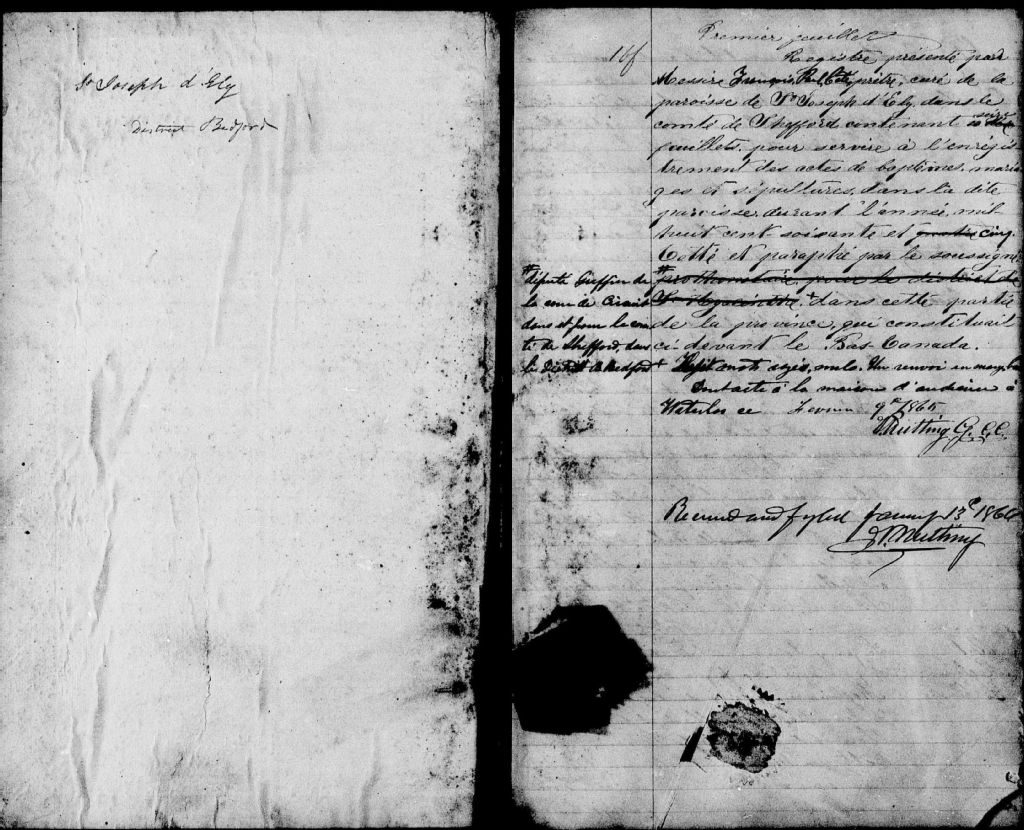 St Joseph d'Ely
District Bedford
1 f
Premier feuillet
Registre présenté par
Messire François Prêtre, curé de la
paroisse de St Joseph d'Ely, dans le
comté de Shefford contenant seize
feuillets, pour servire à l'enrégis
trement des actes de baptêmes, maria
ges et sépultures, dans la dite
paroisse, durant l'année, mil
huit cent soixante et quatre cinq.
Cotté et paraphé par le soussigné
# protonotaire, pour le district de
St Hyacinthe + dans cette partie
de la province, qui constituait
ci-devant le Bas-Canada.
# député Greffier de
la cour de Circuit
dans et pour le com
té de Shefford, dans
le District de Bedford
+ Sept mots rayés, nuls. Un renvoi en marge, bon
à la maison d'audience à
Waterloo ce Fevrier 9me 1865
Nutting G. C. C.
Received and fyled January 13th 1866
Nutting